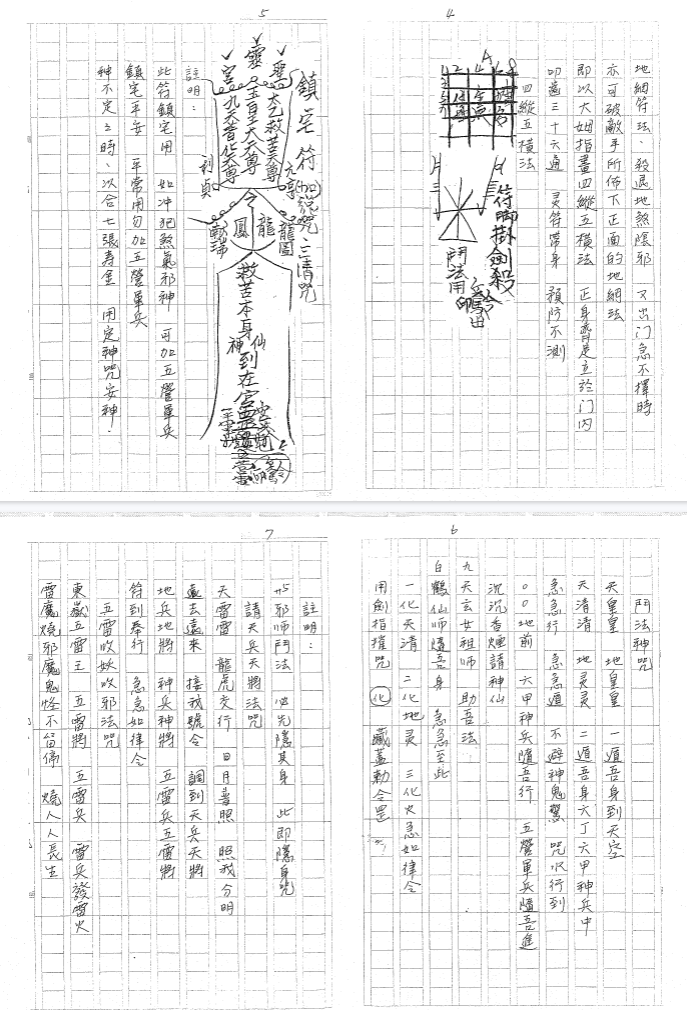 4
地網符法、殺退地煞陰邪 又出门急不擇時
亦可破敵手所佈下正面的地網法
即以大姆指畫四縱五橫法 正身齊足立於门内
叩齒三十六通 灵符帶身 預防不測
四縱五橫法
符脚掛劍殺
鬥法用
5
鎮宅符
(加)
咒:三清咒
靈
宮
太乙救苦天尊
玉皇大天尊
九天普化天尊
元亨
利貞
龍圖
龍
鳳
救苦本身
仙
神
到在宮
註明:
此符鎮宅用 如冲犯煞氣邪神 可加五營軍兵
鎮宅平安 平常用勿加五營軍兵
神不定之時、以合七張壽金 用定神咒安神.
6
鬥法神咒
天皇皇 地皇皇 一遁吾身到天空
天清清 地灵灵 二遁吾身六丁六甲神兵中
急急行 急急遁 不避神鬼驚 咒水行到
〇〇地前 六甲神兵隨吾行 五營軍兵隨吾進
沉沉香煙請神仙
九天玄女祖师 助吾法
白鶴仙师隨吾身 急急至此
一化天清 二化地灵 三化火急如律令
用劍指摧咒 化 藏蓋勅令罡
7
註明:
与邪师鬥法 必先隱其身 此即隱身咒
請天兵天將法咒
天雷雷 龍虎交行 日月普照 照我分明
遠去遠來 接我號令 調到天兵天將
地兵地將 神兵神將 五雷兵五雷將
符到奉行 急急如律令
五雷收妖收邪法咒
東嶽五雷王 五雷將 五雷兵 雷兵發雷火
雷魔燒邪魔鬼怪不留停 燒人人長生